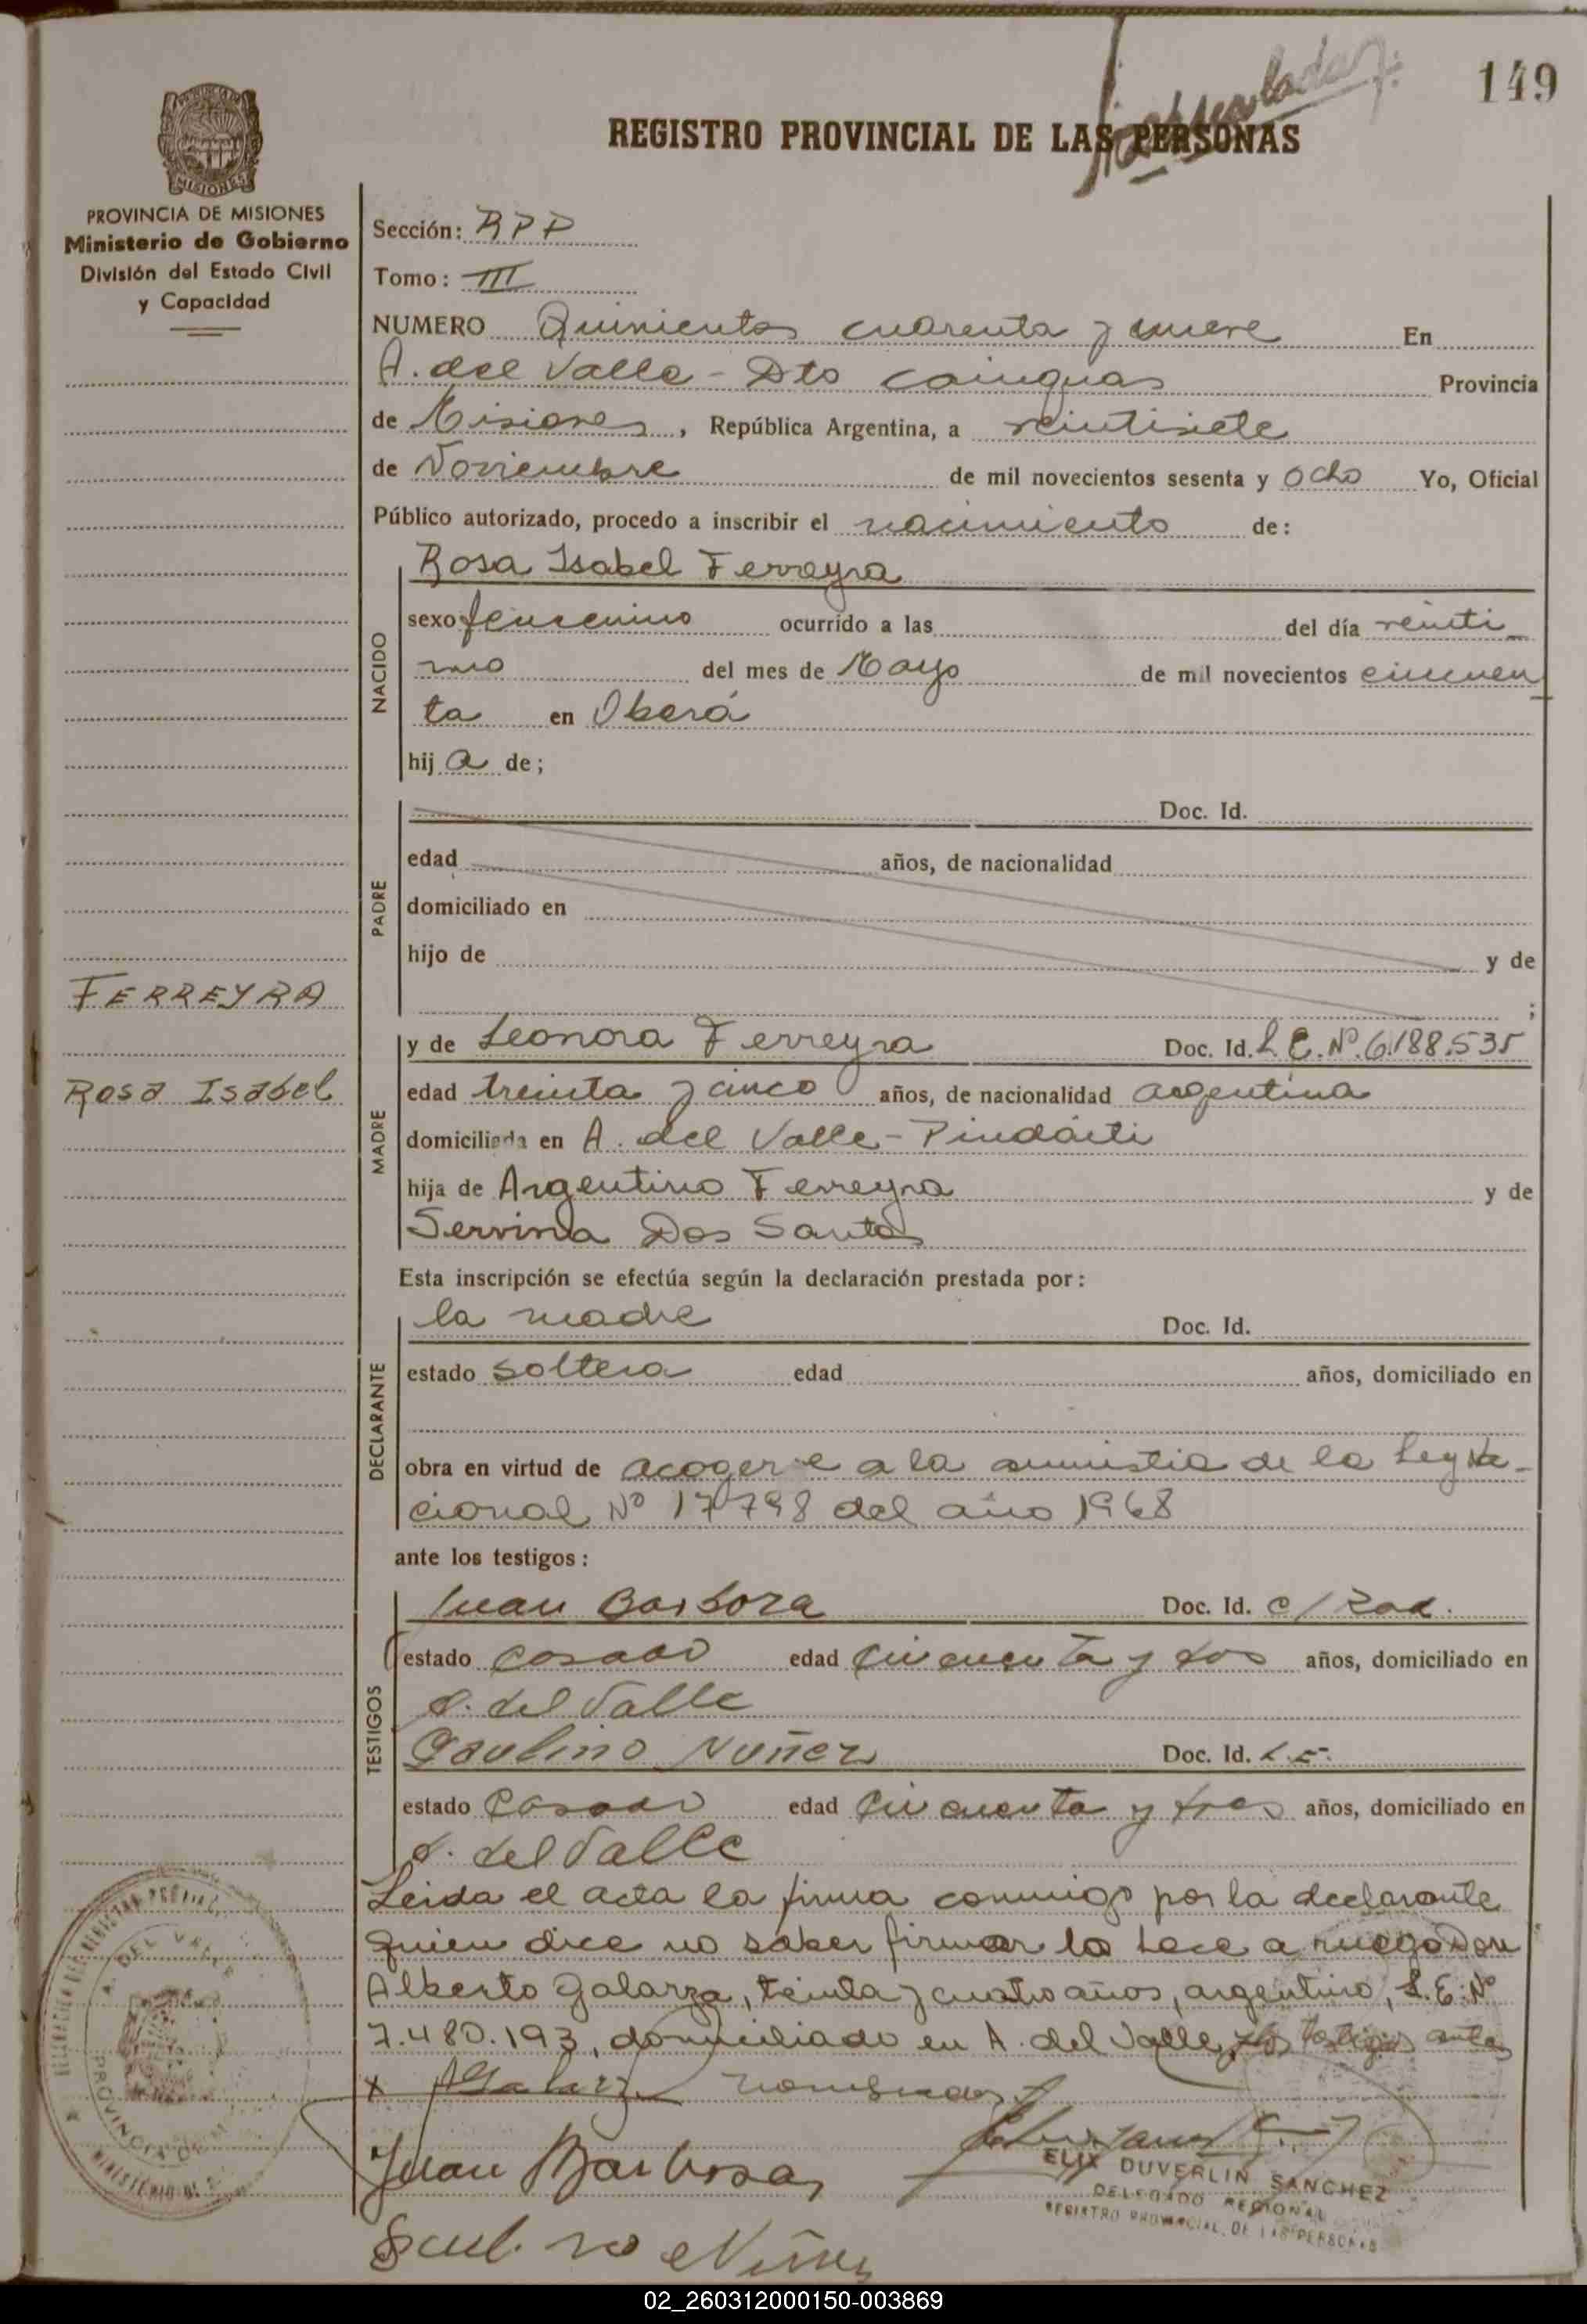 149
REGISTRO PROVINCIAL DE LAS PERSONAS
PROVINCIA DE MISIONES
Ministerio de Gobierno
División del Estado Civil
y Capacidad
Sección: RPP
Tomo: III
NUMERO Quinientos cuarenta y nueve En
A. del Valle - Dto Cainguas Provincia
de Misiones, República Argentina, a veintisiete
de Noviembre de mil novecientos sesenta y ocho Yo, Oficial
Público autorizado, procedo a inscribir el nacimiento de:
NACIDO
Rosa Isabel Ferreyra
sexo femenino ocurrido a las del día veinti
uno del mes de Mayo de mil novecientos cincuen
ta en Oberá
hij a de;
PADRE
Doc. Id.
edad años, de nacionalidad
domiciliado en
hijo de y de
;
FERREYRA
Rosa Isabel
MADRE
y de Leonora Ferreyra Doc. Id. L E. Nº. 6.188.535
edad treinta y cinco años, de nacionalidad argentina
domiciliada en A. del Valle - Pindaiti
hija de Argentino Ferreyra y de
Servina Dos Santos
Esta inscripción se efectúa según la declaración prestada por:
DECLARANTE
la madre Doc. Id.
estado soltera edad años, domiciliado en
obra en virtud de acogerse a la amnistia de la Ley Na-
cional Nº 17798 del año 1968
ante los testigos:
TESTIGOS
Juan Barboza Doc. Id. C/Rad.
estado casado edad cincuenta y dos años, domiciliado en
A. del Valle
Paulino Nuñez Doc. Id. L.E.
estado casado edad cincuenta y tres años, domiciliado en
A. del Valle
Leida el acta la firma conmigo por la declarante
quien dice no saber firmar lo hace a ruego Don
Alberto Galarza, treinta y cuatro años, argentino, L.E. Nº
7.480.193, domiciliado en A. del Valle y los testigos antes
x AGalarza nombrados
Juan Barboza
ELIX DUVERLIN SANCHEZ
DELEGADO REGIONAL
REGISTRO PROVINCIAL DE LAS PERSONAS
A. DEL VALLE
02_260312000150-003869